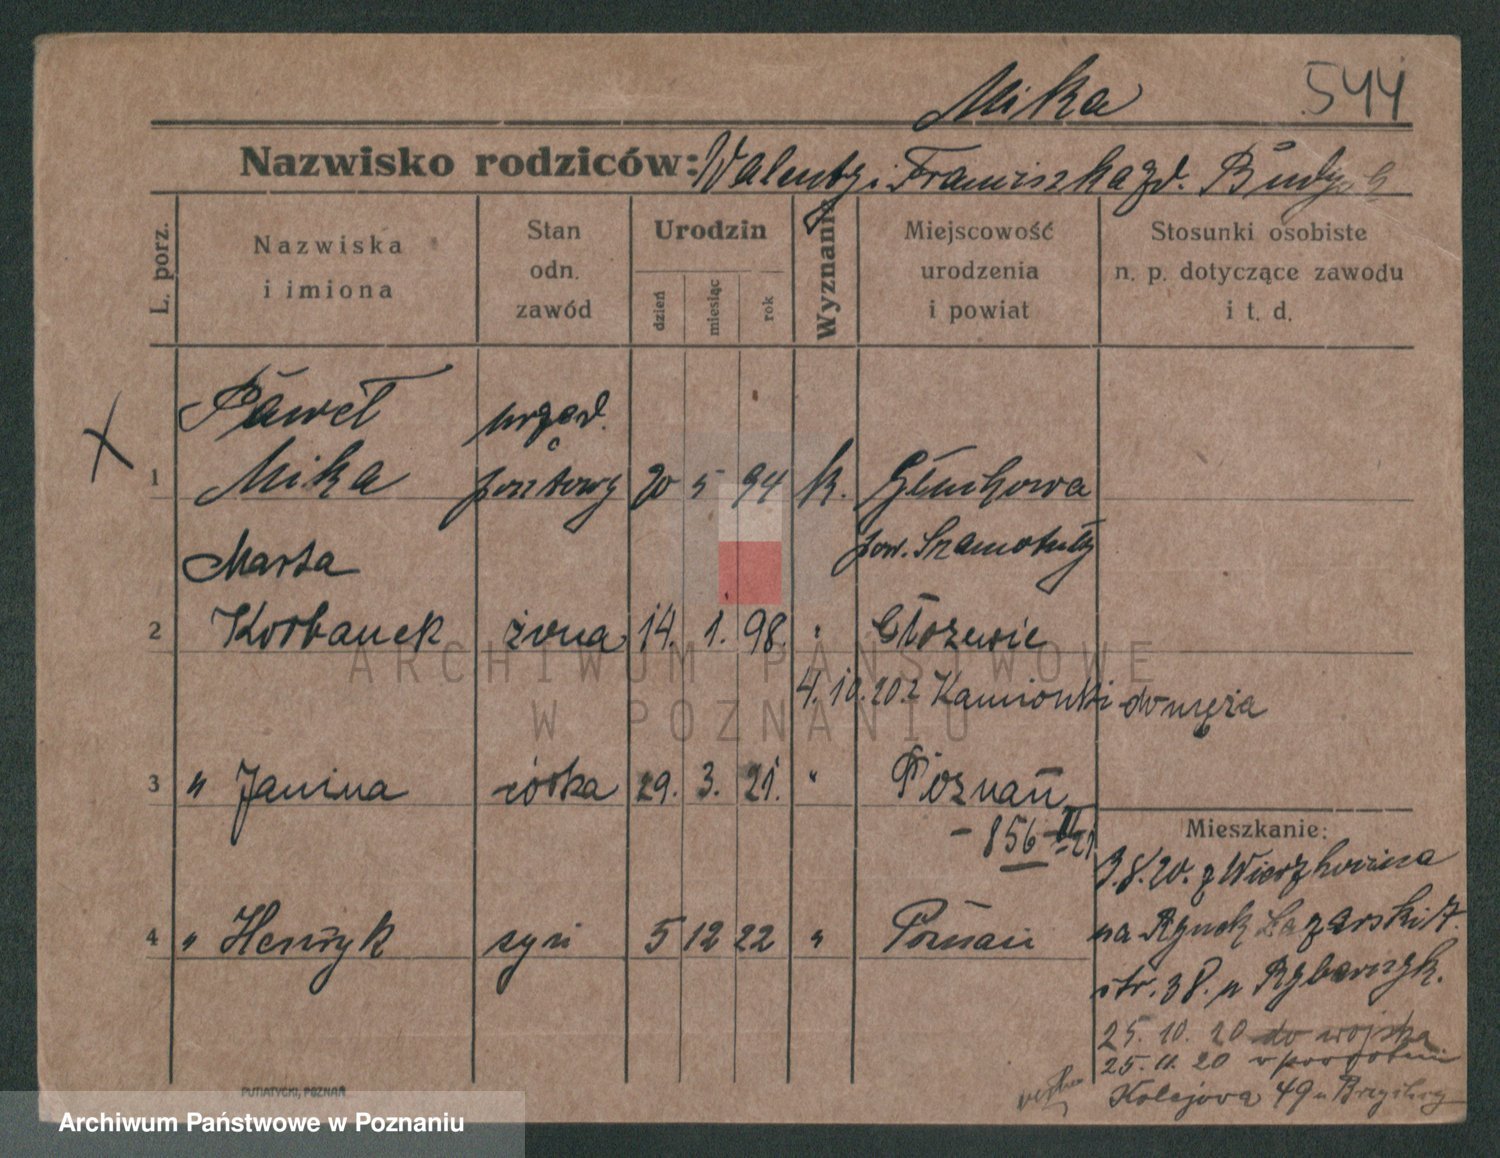 Mika 544
Nazwisko rodziców: Walenty i Franciszka zd.
L. porz.
Nazwiska
i imiona
Stan
odn.
zawód
Urodzin
dzień
miesiąc
rok
Wyznanie
Miejscowość
urodzenia
i powiat
Stosunki osobiste
n. p. dotyczące zawodu
i t. d.
X
Paweł urzęd.
1 Mika pocztowy 20 5 94 k. Głuchowa
pow. Szamotuły
Marta
2 Korbanek żona 14. 1. 98. "
4.10.20 z Kamionki do męża
3 " Janina córka 29. 3. 21. " Poznań
- 856 - II 21
Mieszkanie:
3.8.20. z
4 " Henryk syn 5 12 22 " Poznań
na Rynek Łazarski 17.
str. 38. u Rybarczyk.
25.10.20 do wojska
25.11.20 z powrotem
Kolejowa 49 u
PUTIATYCKI, POZNAŃ
ARCHIWUM PAŃSTWOWE
W POZNANIU
Archiwum Państwowe w Poznaniu